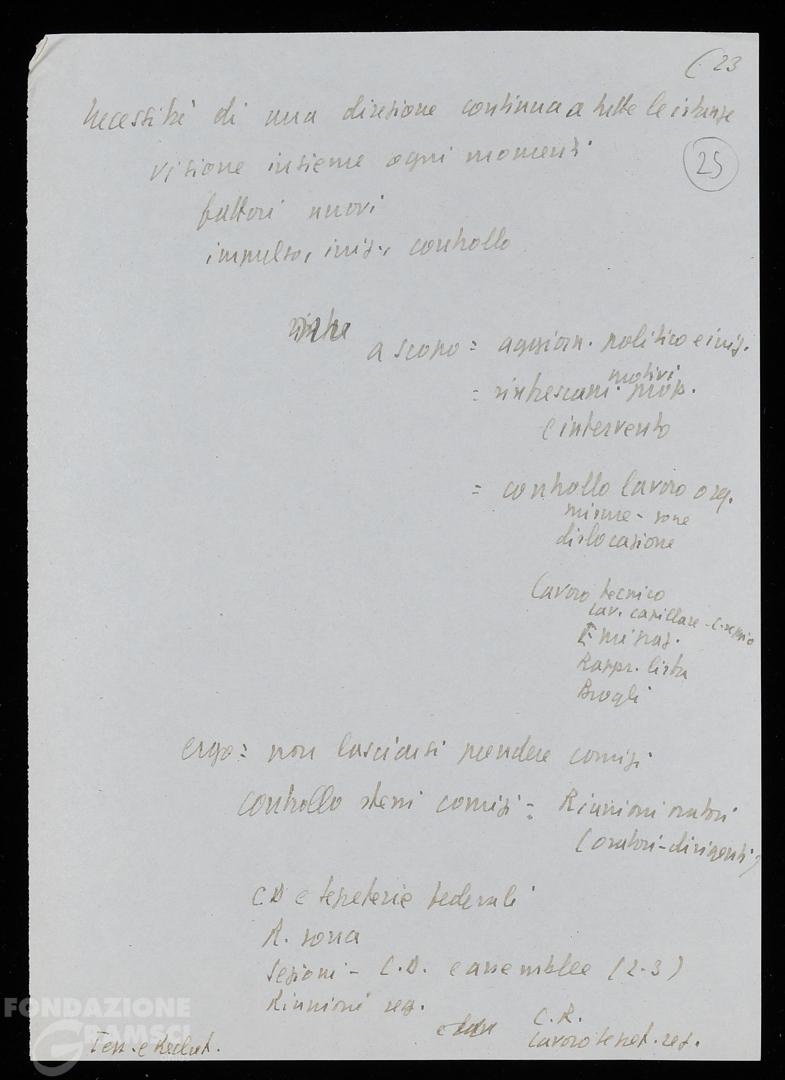 (23
25
Necessità di una direzione continua a tutte le istanze
visione insieme ogni momenti
fattori nuovi
impulso, iniz., controllo
a scopo = aggiorn. politico e iniz.
motivi
= rinfrescam. prop.
e intervento
= controllo lavoro org.
misure - zone
dislocazione
Lavoro tecnico
Lav. capillare - C. seggio
Emigraz.
Rappr. lista
Brogli
ergo = non lasciarsi prendere comizi
controllo stessi comizi = Riunioni oratori
(oratori-dirigenti)
C.D e segreterie federali
R. zona
Sezioni - C.D. e assemblee (2-3)
Riunioni reg.
C.R.
Lavoro segret. reg.
Tess. e Reclut.
FONDAZIONE
GRAMSCI